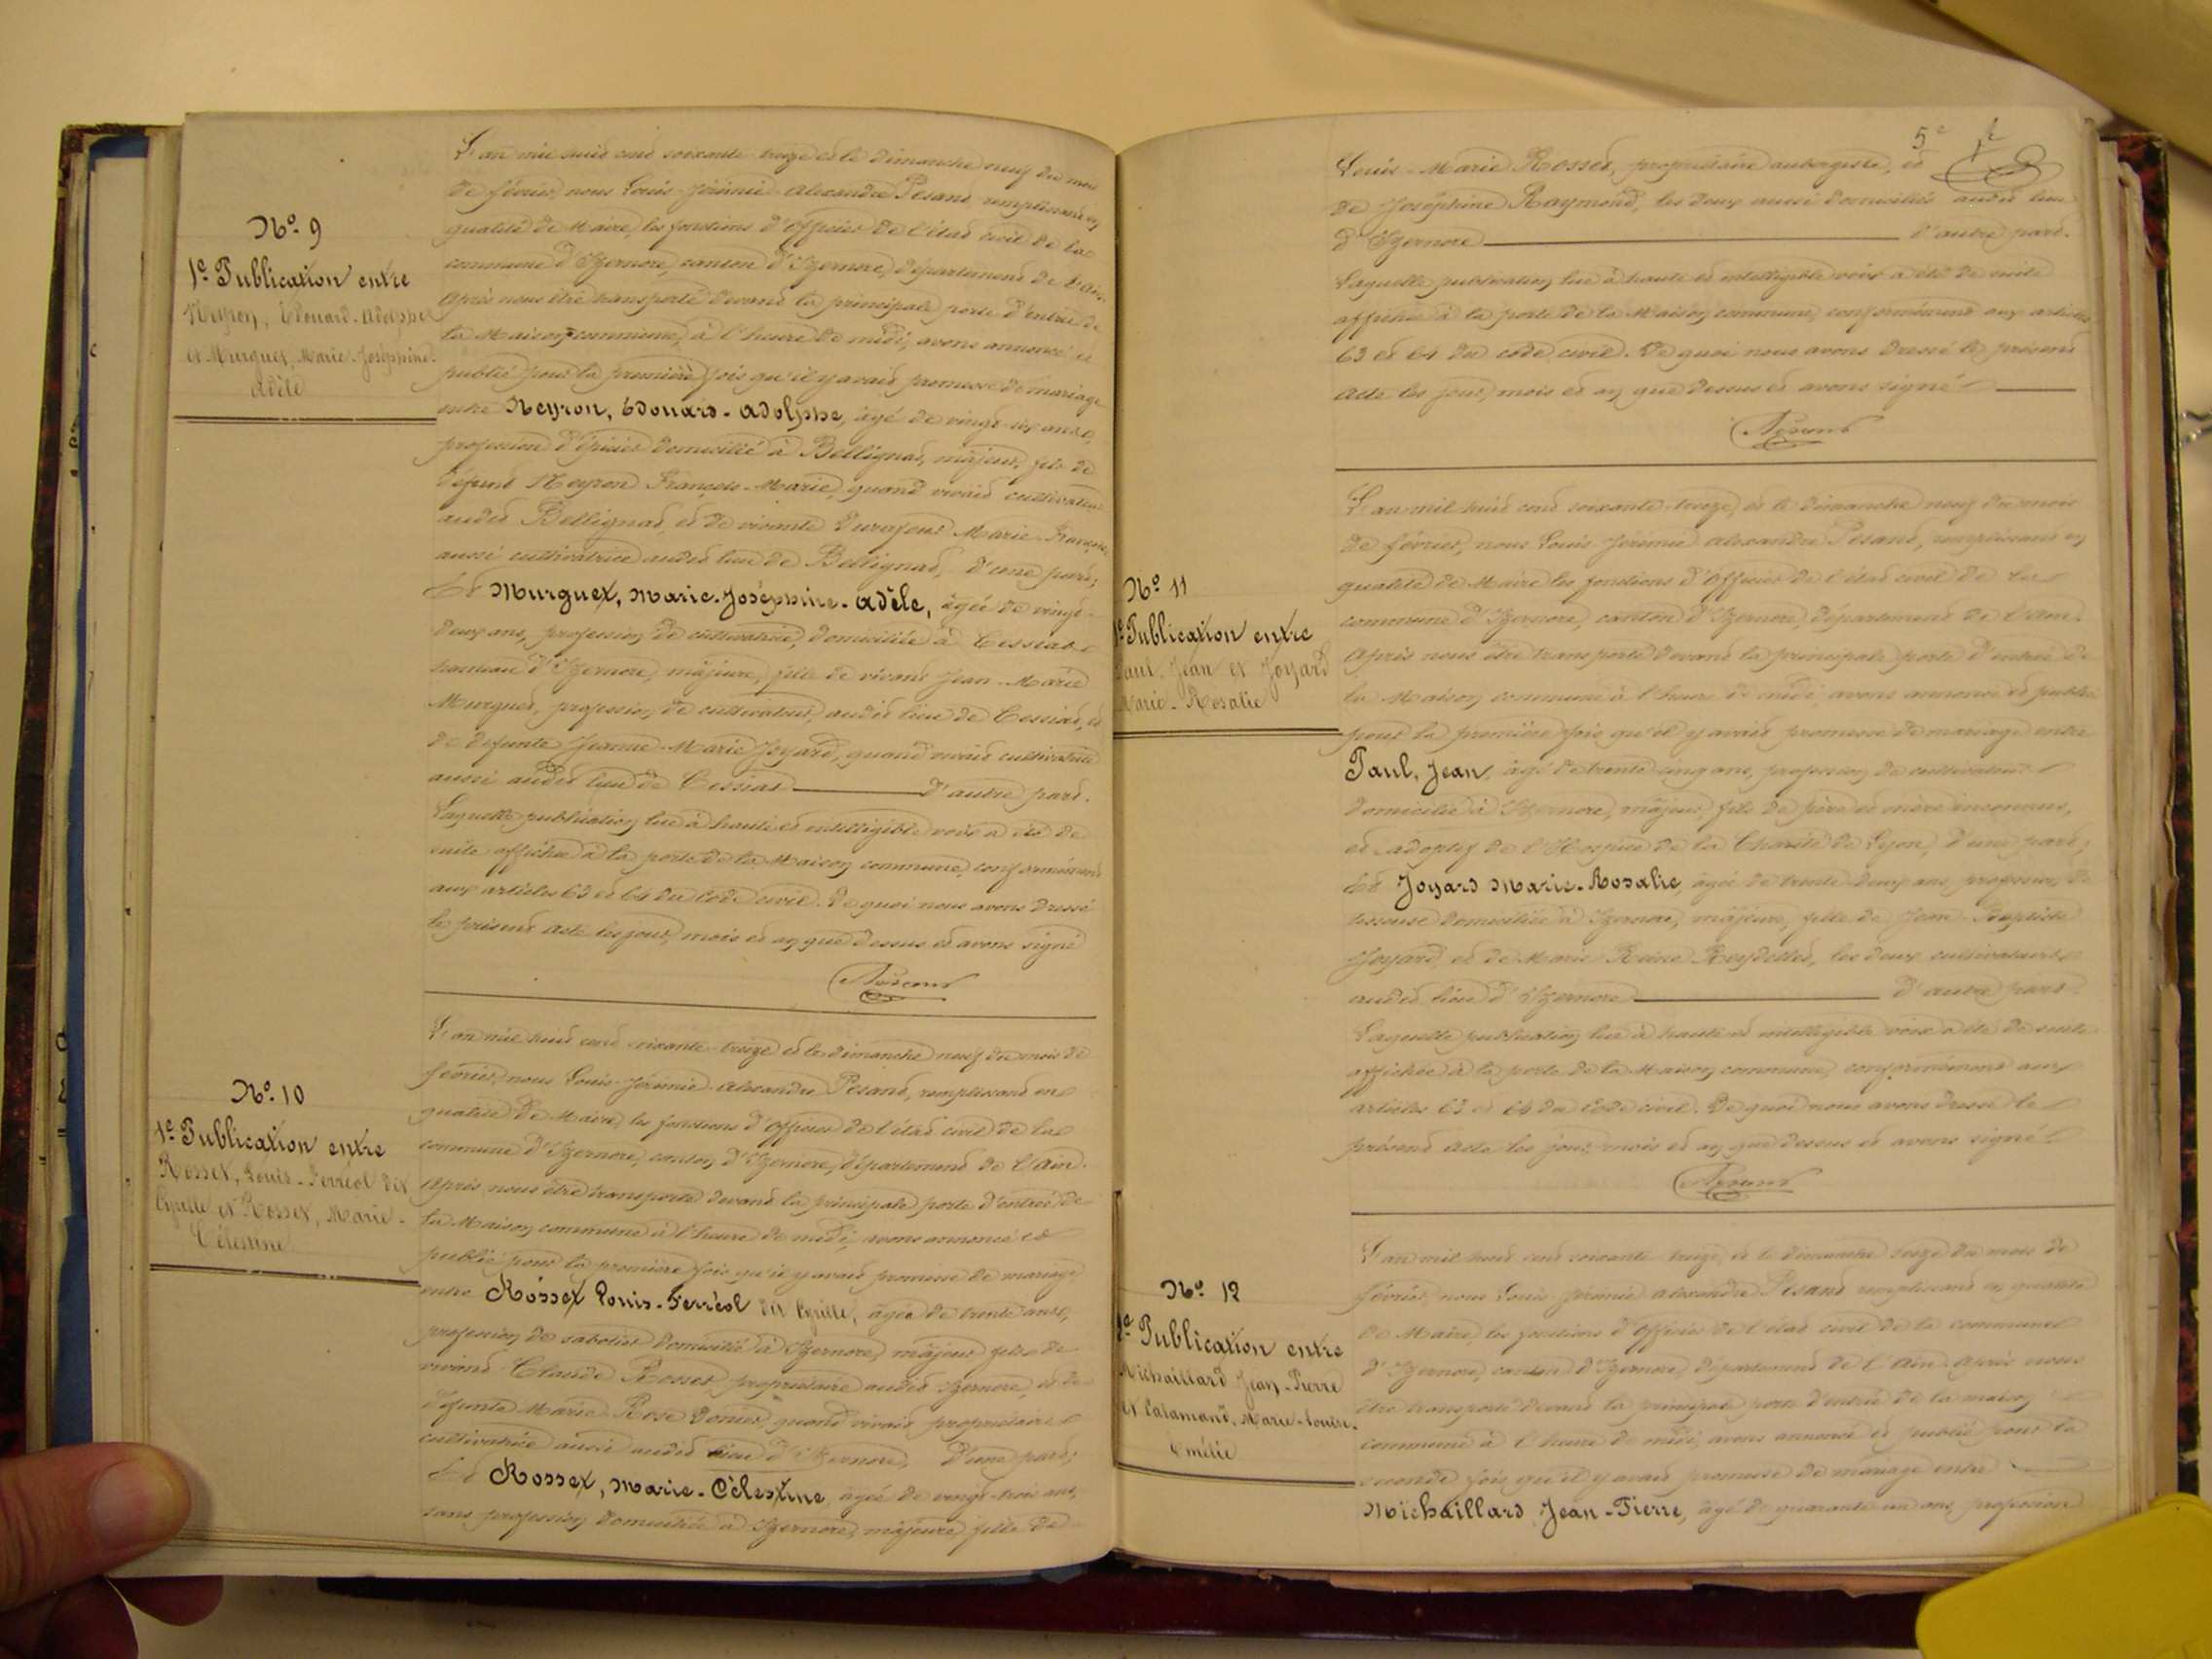 L'an mil huit cent soixante-treize et le dimanche neuf du mois
de février, nous Louis-Jérémie-Alexandre Pesant remplissant en
qualité de Maire, les fonctions d'Officier de l'état civil de la
commune d'Izernore, canton d'Izernore, département de l'Ain.
Après nous être transporté devant la principale porte d'entrée de
la Maison commune, à l'heure de midi, avons annoncé et
publié pour la première fois qu'il y avait promesse de mariage
entre Neyron, Edouard-Adolphe, âgé de vingt-six ans,
profession d'épicier domicilié à Bellignat, majeur, fils de
défunt Neyron François-Marie, quand vivait cultivateur
audit Bellignat, et de vivante Durafour Marie-Françoise
aussi cultivatrice audit lieu de Bellignat, d'une part;
Et Murguet, Marie-Joséphine-Adèle, âgée de vingt-
deux ans, profession de cultivatrice, domiciliée à Cessiat
hameau d'Izernore, majeure, fille de vivant Jean-Marie
Murguet, profession de cultivateur, audit lieu de Cessiat, et
de défunte Jeanne-Marie Joyard, quand vivait cultivatrice
aussi audit lieu de Cessiat d'autre part.
Laquelle publication lue à haute et intelligible voix a été de
suite affichée à la porte de la Maison commune, conformément
aux articles 63 et 64 du Code civil. De quoi nous avons dressé
le présent acte les jour, mois et an que dessus et avons signé
Pesant
No. 9
1e Publication entre
Neyron, Edouard-Adolphe
et Murguet, Marie-Joséphine-
Adèle
L'an mil huit cent soixante-treize et le dimanche neuf du mois de
février, nous Louis-Jérémie-Alexandre Pesant, remplissant en
qualité de Maire, les fonctions d'Officier de l'état civil de la
commune d'Izernore, canton d'Izernore, département de l'Ain.
Après nous être transporté devant la principale porte d'entrée de
la Maison commune à l'heure de midi, avons annoncé et
publié pour la première fois qu'il y avait promesse de mariage
entre Rosset Louis-Ferréol dit Cyrille, âgée de trente ans,
profession de sabotier domicilié à Izernore, majeur fils de
vivant Claude Rosset, propriétaire audit Izernore, et de
défunte Marie-Rose quand vivait propriétaire
cultivatrice aussi audit lieu d'Izernore, D'une part;
Et Rosset, Marie-Célestine, âgée de vingt-trois ans,
sans profession, domiciliée à Izernore, majeure, fille de
No. 10
1e Publication entre
Rosset, Louis-Ferréol dit
Cyrille et Rosset, Marie-
Célestine
5e
Louis-Marie Rosset, propriétaire aubergiste, et
de Joséphine Raymond, les deux aussi domiciliés audit lieu
d'Izernore d'autre part.
Laquelle publication lue à haute et intelligible voix a été de suite
affichée à la porte de la Maison commune, conformément aux articles
63 et 64 du code civil. De quoi nous avons dressé le présent
acte les jour, mois et an que dessus et avons signé
Pesant
L'an mil huit cent soixante-treize, et le dimanche neuf du mois
de février, nous Louis-Jérémie Alexandre Pesant, remplissant en
qualité de Maire les fonctions d'Officier de l'état civil de la
commune d'Izernore, canton d'Izernore, département de l'Ain.
Après nous être transporté devant la principale porte d'entrée de
la Maison commune à l'heure de midi, avons annoncé et publié
pour la première fois qu'il y avait promesse de mariage entre
Paul, Jean, âgé de trente-cinq ans, profession de cultivateur
domicilié à Izernore, majeur, fils de père et mère inconnus,
et adoptif de l'Hospice de la Charité de Lyon, d'une part;
Et Joyard Marie-Rosalie, âgée de trente-deux ans, profession de
tisseuse domiciliée à Izernore, majeure, fille de Jean-Baptiste
Joyard, et de Marie-Reine Reydellet, les deux cultivateurs
audit lieu d'Izernore d'autre part.
Laquelle publication lue à haute et intelligible voix a été de suite
affichée à la porte de la Maison commune, conformément aux
articles 63 et 64 du Code civil. De quoi nous avons dressé le
présent acte les jour, mois et an que dessus et avons signé.
Pesant
No. 11
1e Publication entre
Paul, Jean et Joyard
Marie-Rosalie
L'an mil huit cent soixante-treize, et le dimanche seize du mois de
février, nous Louis-Jérémie Alexandre Pesant remplissant en qualité
de Maire, les fonctions d'Officier de l'état civil de la commune
d'Izernore, canton d'Izernore, département de l'Ain. Après nous
être transporté devant la principale porte d'entrée de la maison
commune à l'heure de midi, avons annoncé et publié pour la
seconde fois qu'il y avait promesse de mariage entre
Michaillard, Jean-Pierre, âgé de quarante-un ans, profession
No. 12
2e Publication entre
Michaillard Jean-Pierre
et Calamand, Marie-Louise-
Emélie